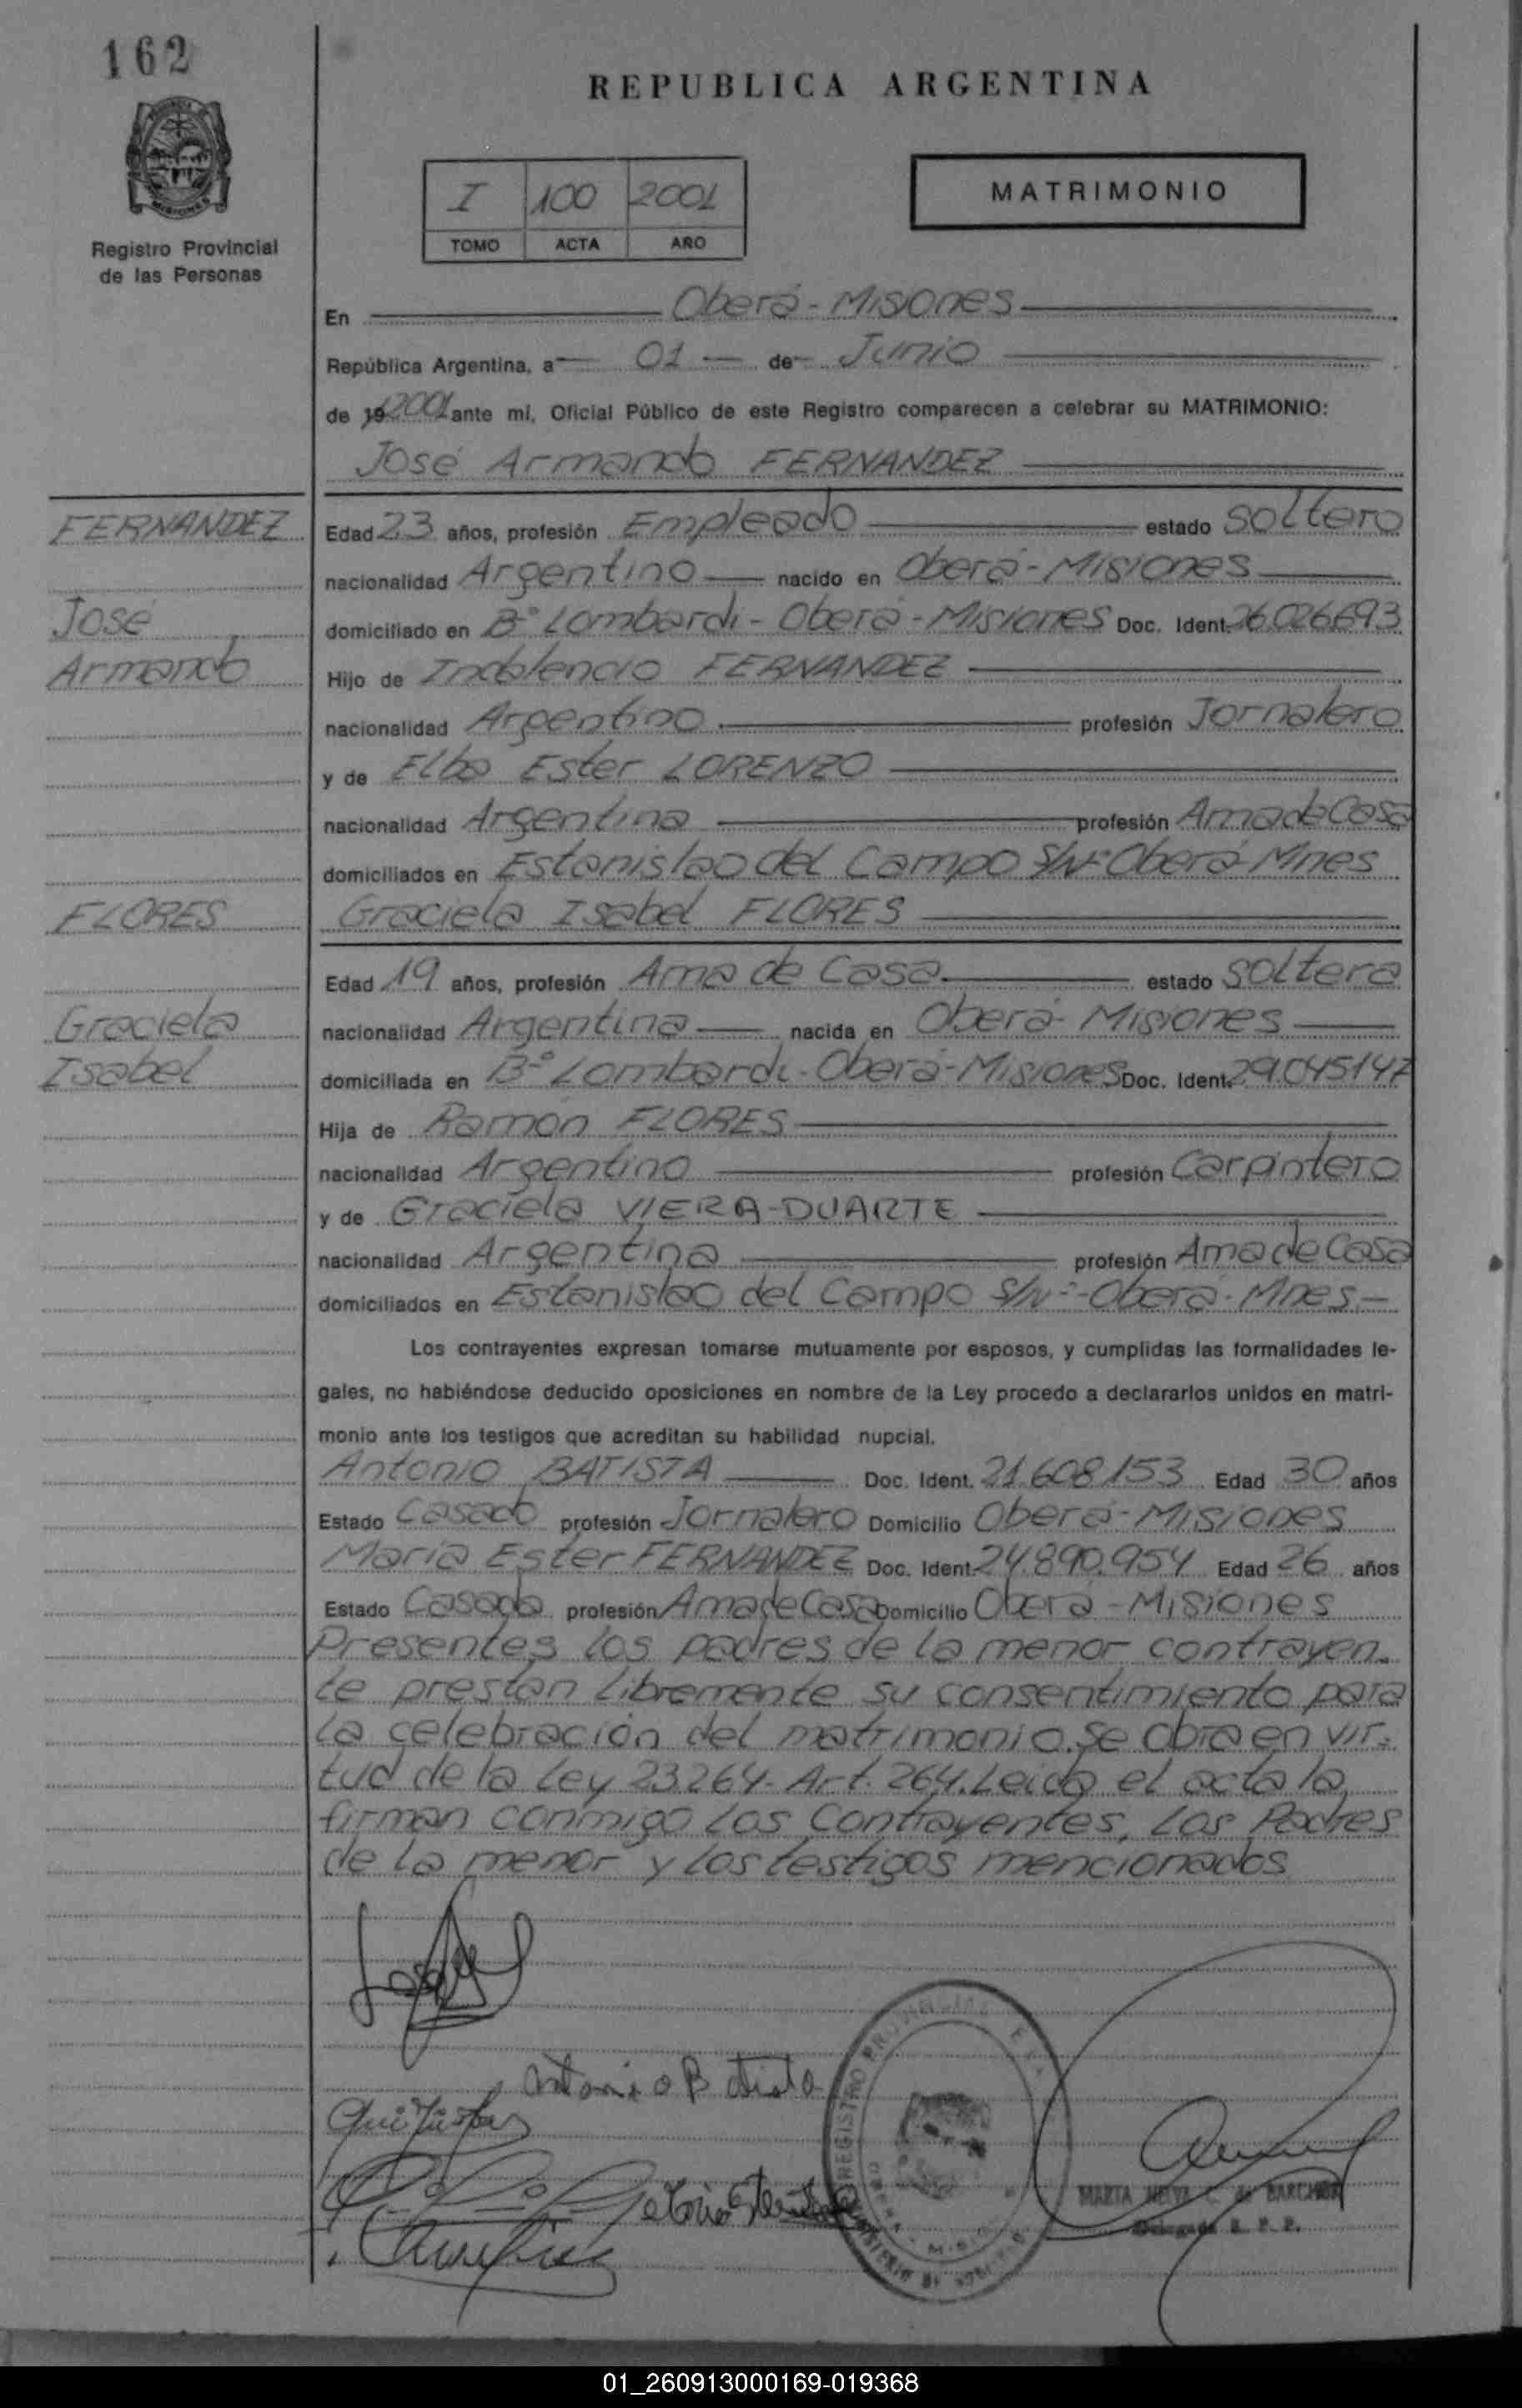 162
REPUBLICA ARGENTINA
I 100 2001
TOMO ACTA AÑO
MATRIMONIO
Registro Provincial
de las Personas
En Oberá - Misiones
República Argentina, a 01 de Junio
de 19 2001 ante mi, Oficial Público de este Registro comparecen a celebrar su MATRIMONIO:
José Armando FERNANDEZ
FERNANDEZ
José
Armando
Edad 23 años, profesión Empleado estado soltero
nacionalidad Argentino nacido en Oberá - Misiones
domiciliado en B° Lombardi - Oberá - Misiones Doc. Ident. 26.026.693
Hijo de Indolencio FERNANDEZ
nacionalidad Argentino profesión Jornalero
y de Elba Ester LORENZO
nacionalidad Argentina profesión Ama de Casa
domiciliados en Estanislao del Campo S/N° Oberá - Mnes
FLORES
Graciela
Isabel
Graciela Isabel FLORES
Edad 19 años, profesión Ama de Casa estado soltera
nacionalidad Argentina nacida en Oberá - Misiones
domiciliada en B° Lombardi - Oberá - Misiones Doc. Ident. 29.045147
Hija de Ramón FLORES
nacionalidad Argentino profesión Carpintero
y de Graciela VIERA-DUARTE
nacionalidad Argentina profesión Ama de Casa
domiciliados en Estanislao del Campo S/N° - Oberá - Mnes -
Los contrayentes expresan tomarse mutuamente por esposos, y cumplidas las formalidades le-
gales, no habiéndose deducido oposiciones en nombre de la Ley procedo a declararlos unidos en matri-
monio ante los testigos que acreditan su habilidad nupcial.
Antonio BATISTA Doc. Ident. 21.608.153 Edad 30 años
Estado Casado profesión Jornalero Domicilio Oberá - Misiones
María Ester FERNANDEZ Doc. Ident. 24.890.954 Edad 26 años
Estado Casada profesión Ama de Casa Domicilio Oberá - Misiones
Presentes los padres de la menor contrayen-
te prestan libremente su consentimiento para
la celebración del matrimonio. Se obra en vir-
tud de la Ley 23.264 - Art. 264. Leida el acta la
firman conmigo los Contrayentes, los Padres
de la menor y los testigos mencionados
Antonio Batista
REGISTRO PROVINCIAL
MARTA
Delegada R. P. P.
01_260913000169-019368